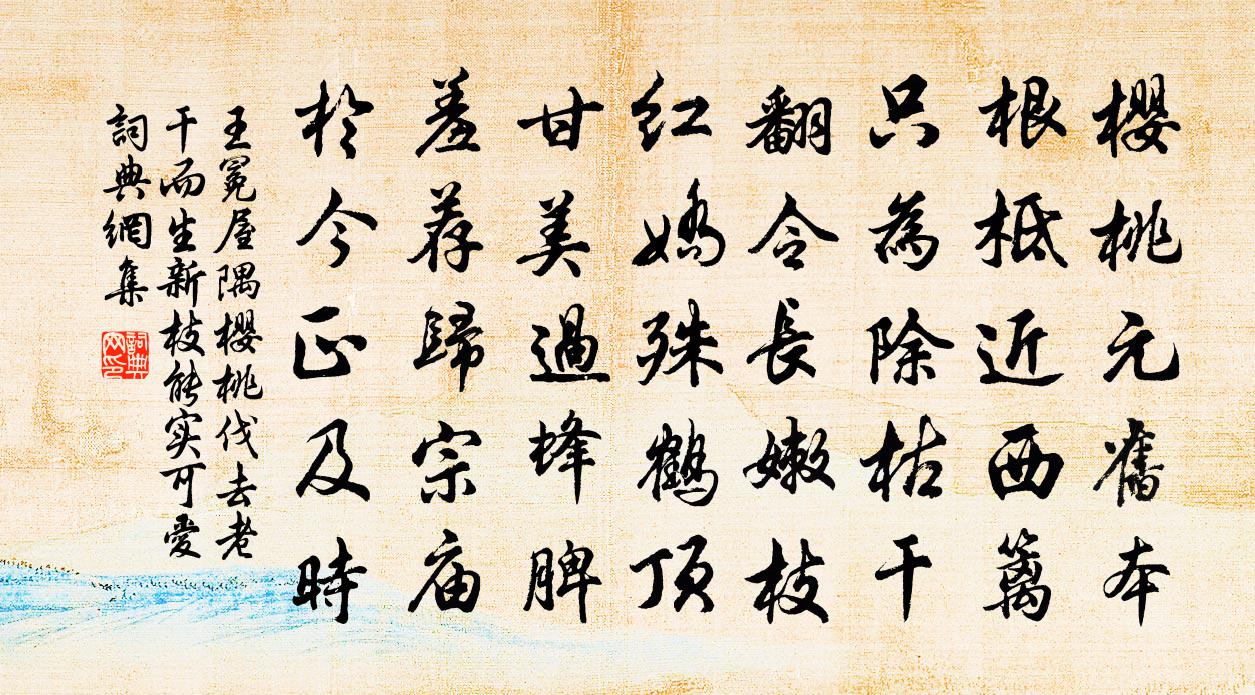 櫻桃元舊本
根柢近西籬
只為除枯干
翻令長嫩枝
紅嬌殊鶴頂
甘美過蜂脾
羞荐歸宗庙
於今正及時
王冕屋隅櫻桃伐去老
干而生新枝能实可愛
詞典網集
詞典
网印